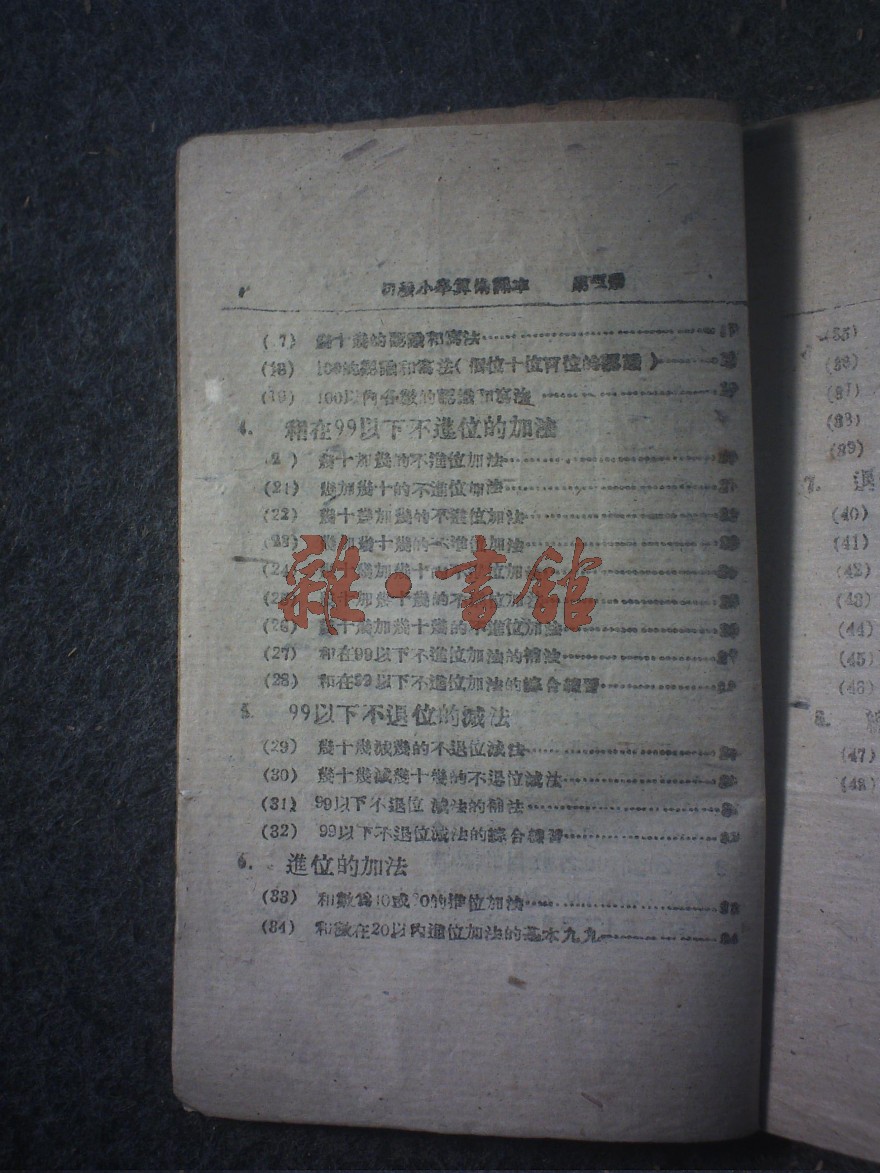 初級小學算術課本
(17) 幾十幾的認識和寫法
(18) 100的認識和寫法(個位十位百位的認識)
(19) 100以內各數的認識和寫法
4. 和在99以下不進位的加法
幾十加幾的不進位加法
(21) 幾加幾十的不進位加法
(22) 幾十幾加幾的不進位加法
(23) 幾加幾十幾的不進位加法
(24) 幾十幾加幾十的不進位加法
幾十加幾十幾的不進位加法
(26) 幾十幾加幾十幾的不進位加法
(27) 和在99以下不進位加法的補法
(28) 和在99以下不進位加法的綜合練習
5. 99以下不退位的減法
(29) 幾十幾減幾的不退位減法
(30) 幾十幾減幾十幾的不退位減法
(31) 99以下不退位 減法的補法
(32) 99以下不退位減法的綜合練習
6. 進位的加法
(33) 和數為10或20的進位加法
(34) 和數在20以內進位加法的基本九九
雜·書館
(35)
(36)
(37)
(38)
(39)
7. 退
(40)
(41)
(42)
(43)
(44)
(45)
(46)
8.
(47)
(48)